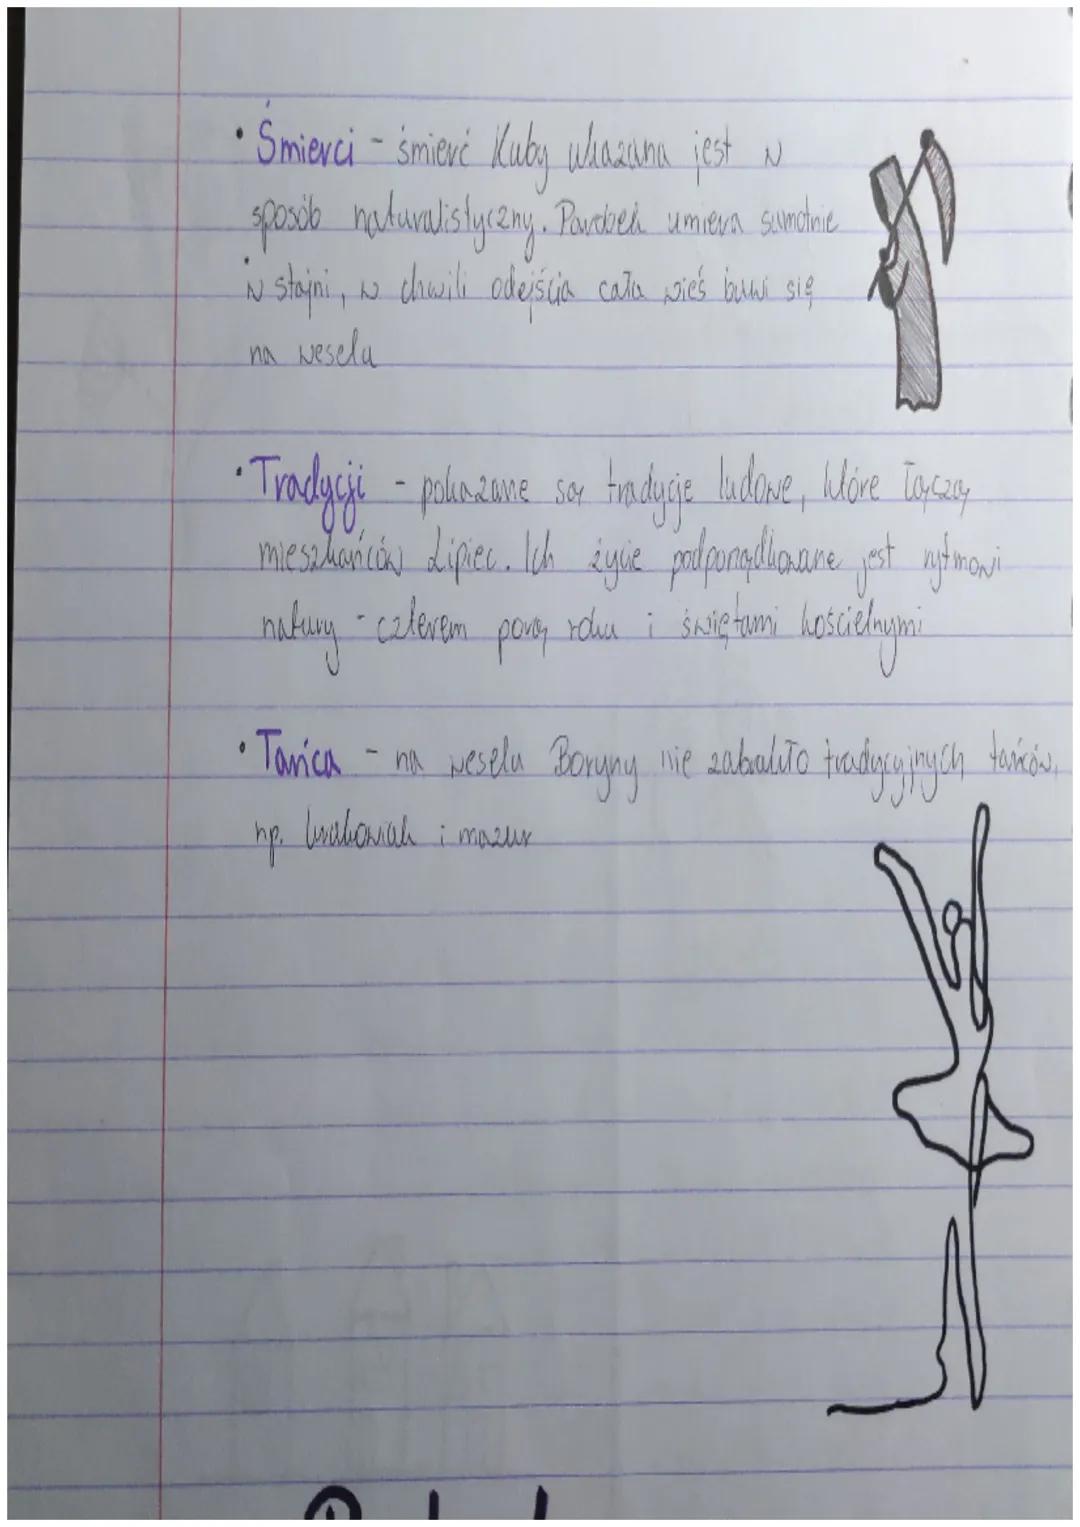 • Śmierci - śmierć Kuby ukazana jest w
sposób naturalistyczny. Parobek umiera samotnie
w stajni, w chwili odejścia cała wieś bawi się
na weselu
• Tradycji - pokazane są tradycje ludowe, które łączą
mieszkańców Lipiec. Ich życie podporządkowane jest rytmowi
natury - czterem porą roku i świętami kościelnymi
• Tańca - na weselu Boryny nie zabrakło tradycyjnych tańców,
np. krakowiak i mazur